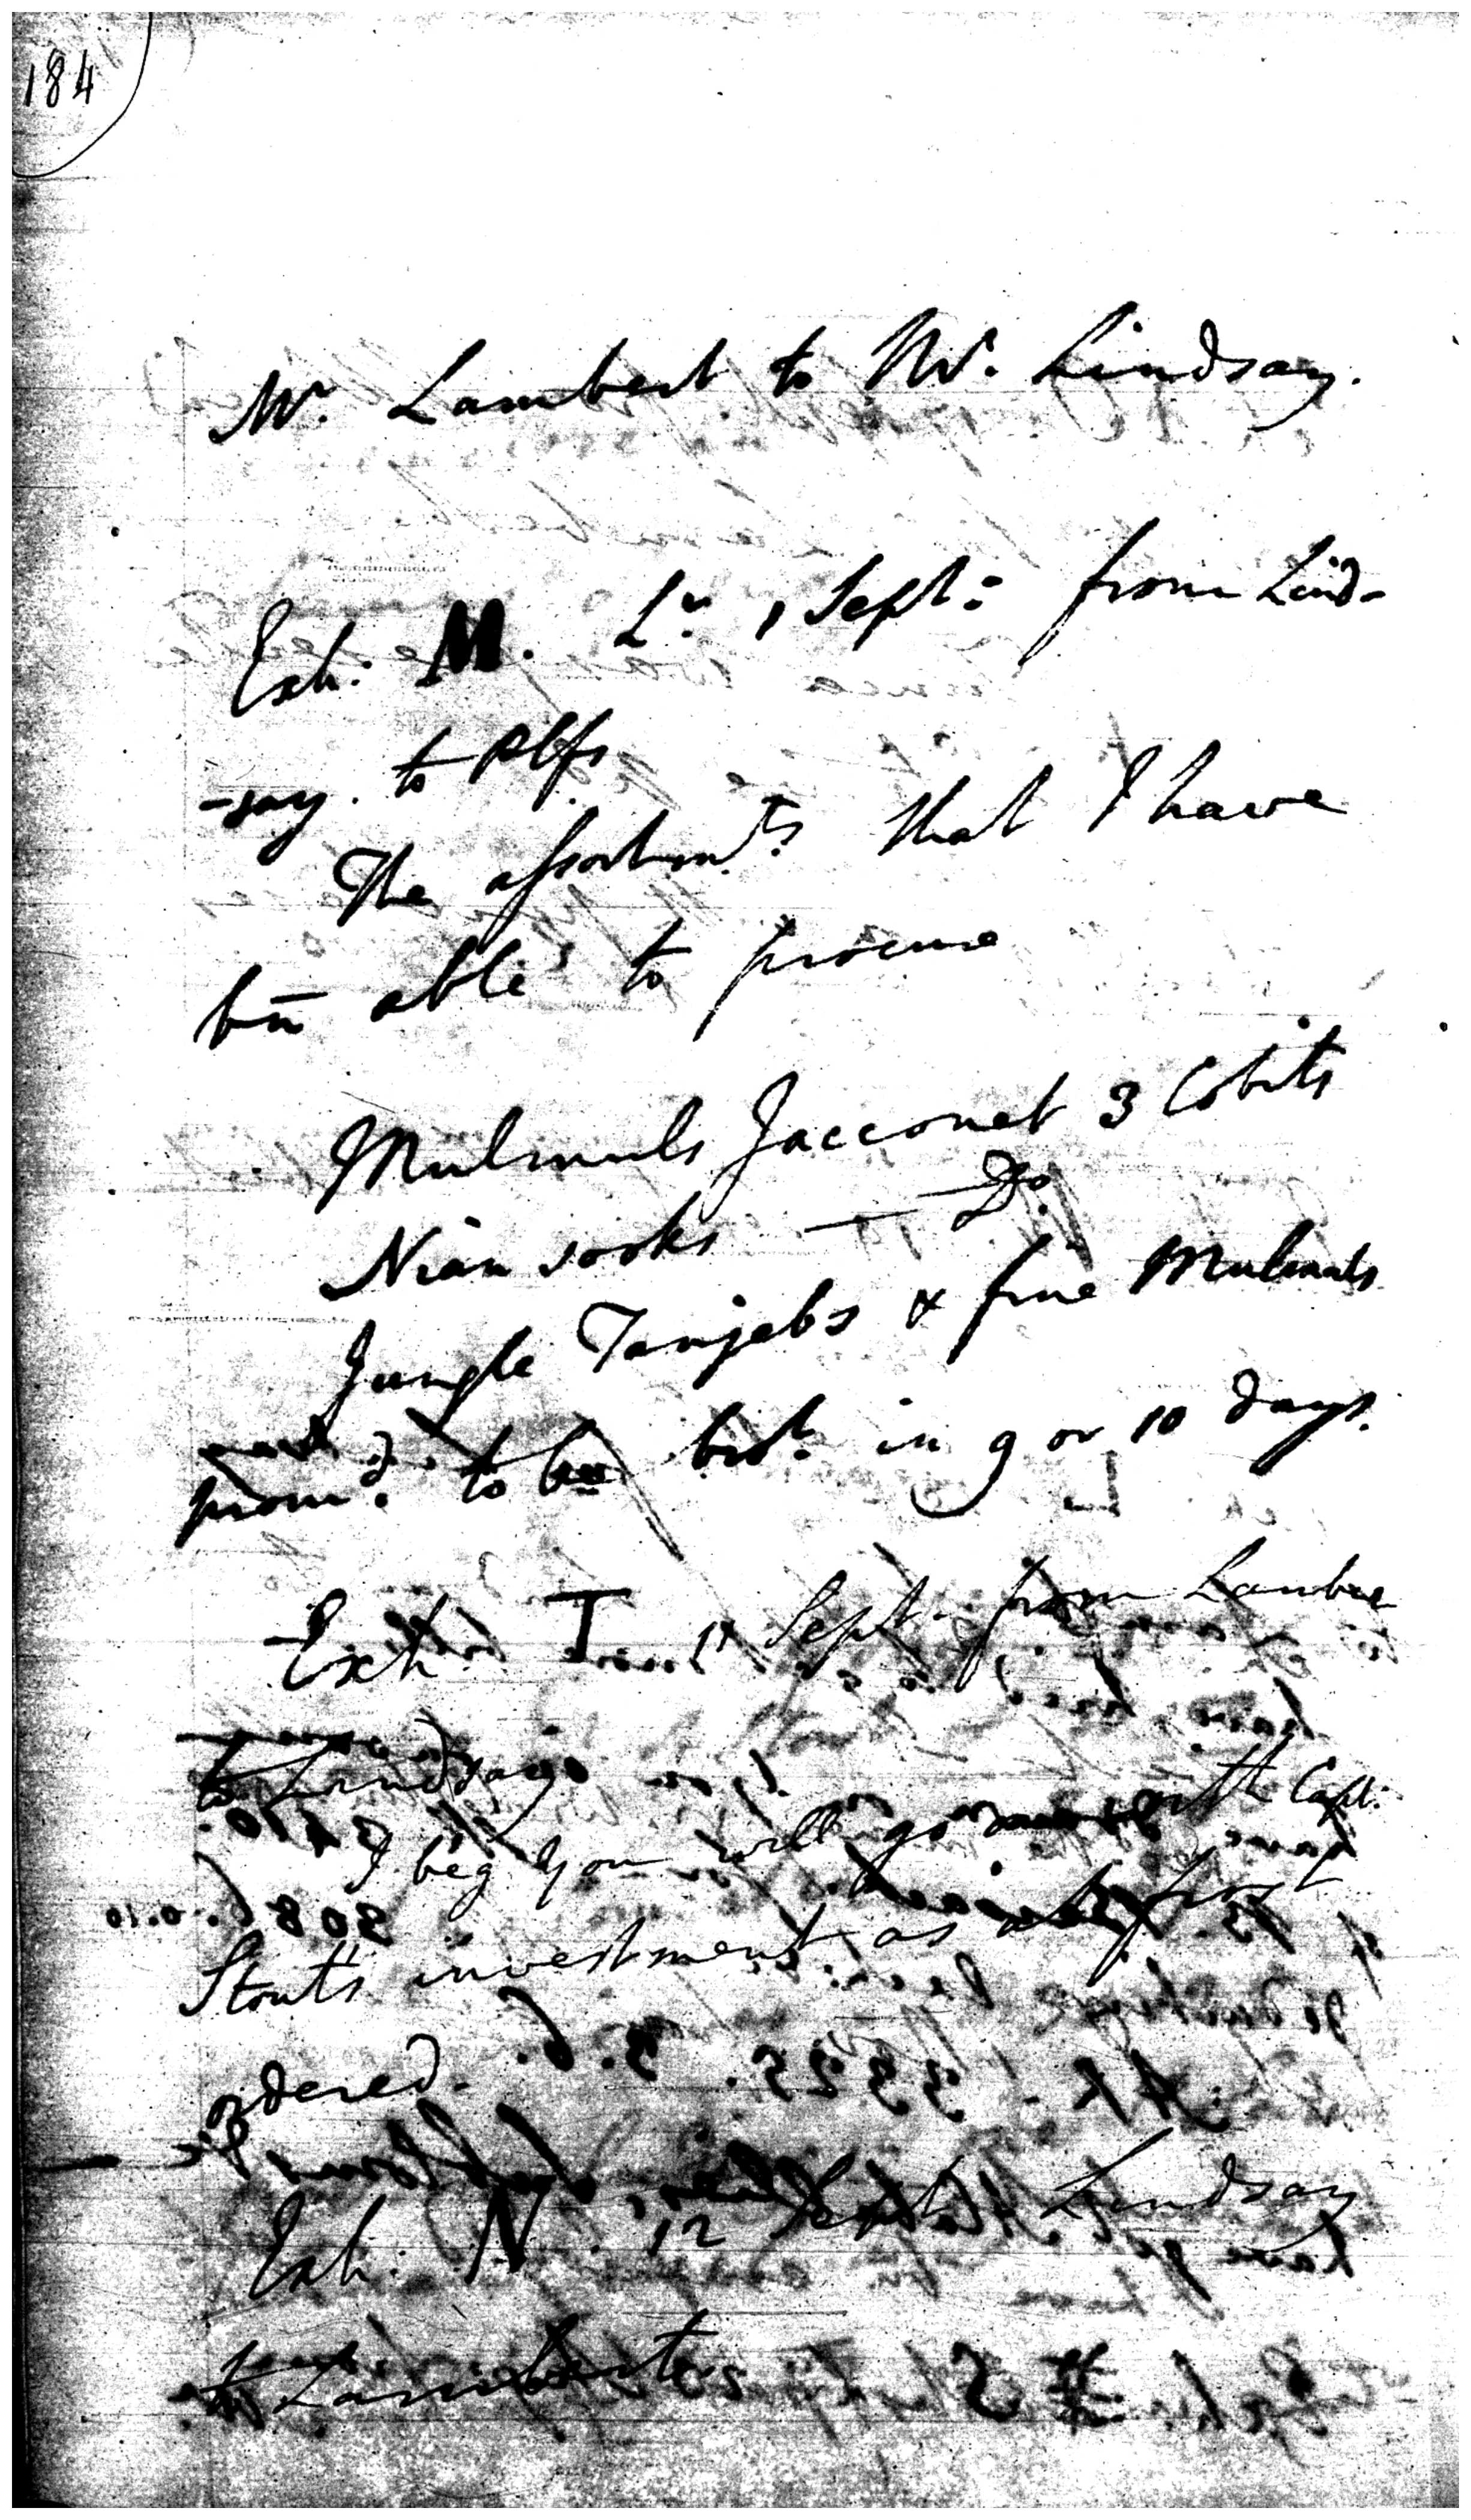 184
Mr. Lambert to Mr. Lindsay.
Exh: M. Lr. 1 Sept: from Lind-
-say. to Plfs
The assortmts. that I have
bn able to procure
Mulmuls Jacconet 3 Cobits
Niansooks — Do.
Jungle Tanjebs & fine Mulmuls
promd. to be brot. in 9 or 10 days.
Exh. T 11 Sept. from Lambe
to Lindsay
I beg you will go on with Capt:
Stouts investment as at first
ordered.
Exh: N. 12 Sept Lindsay
to Lambert